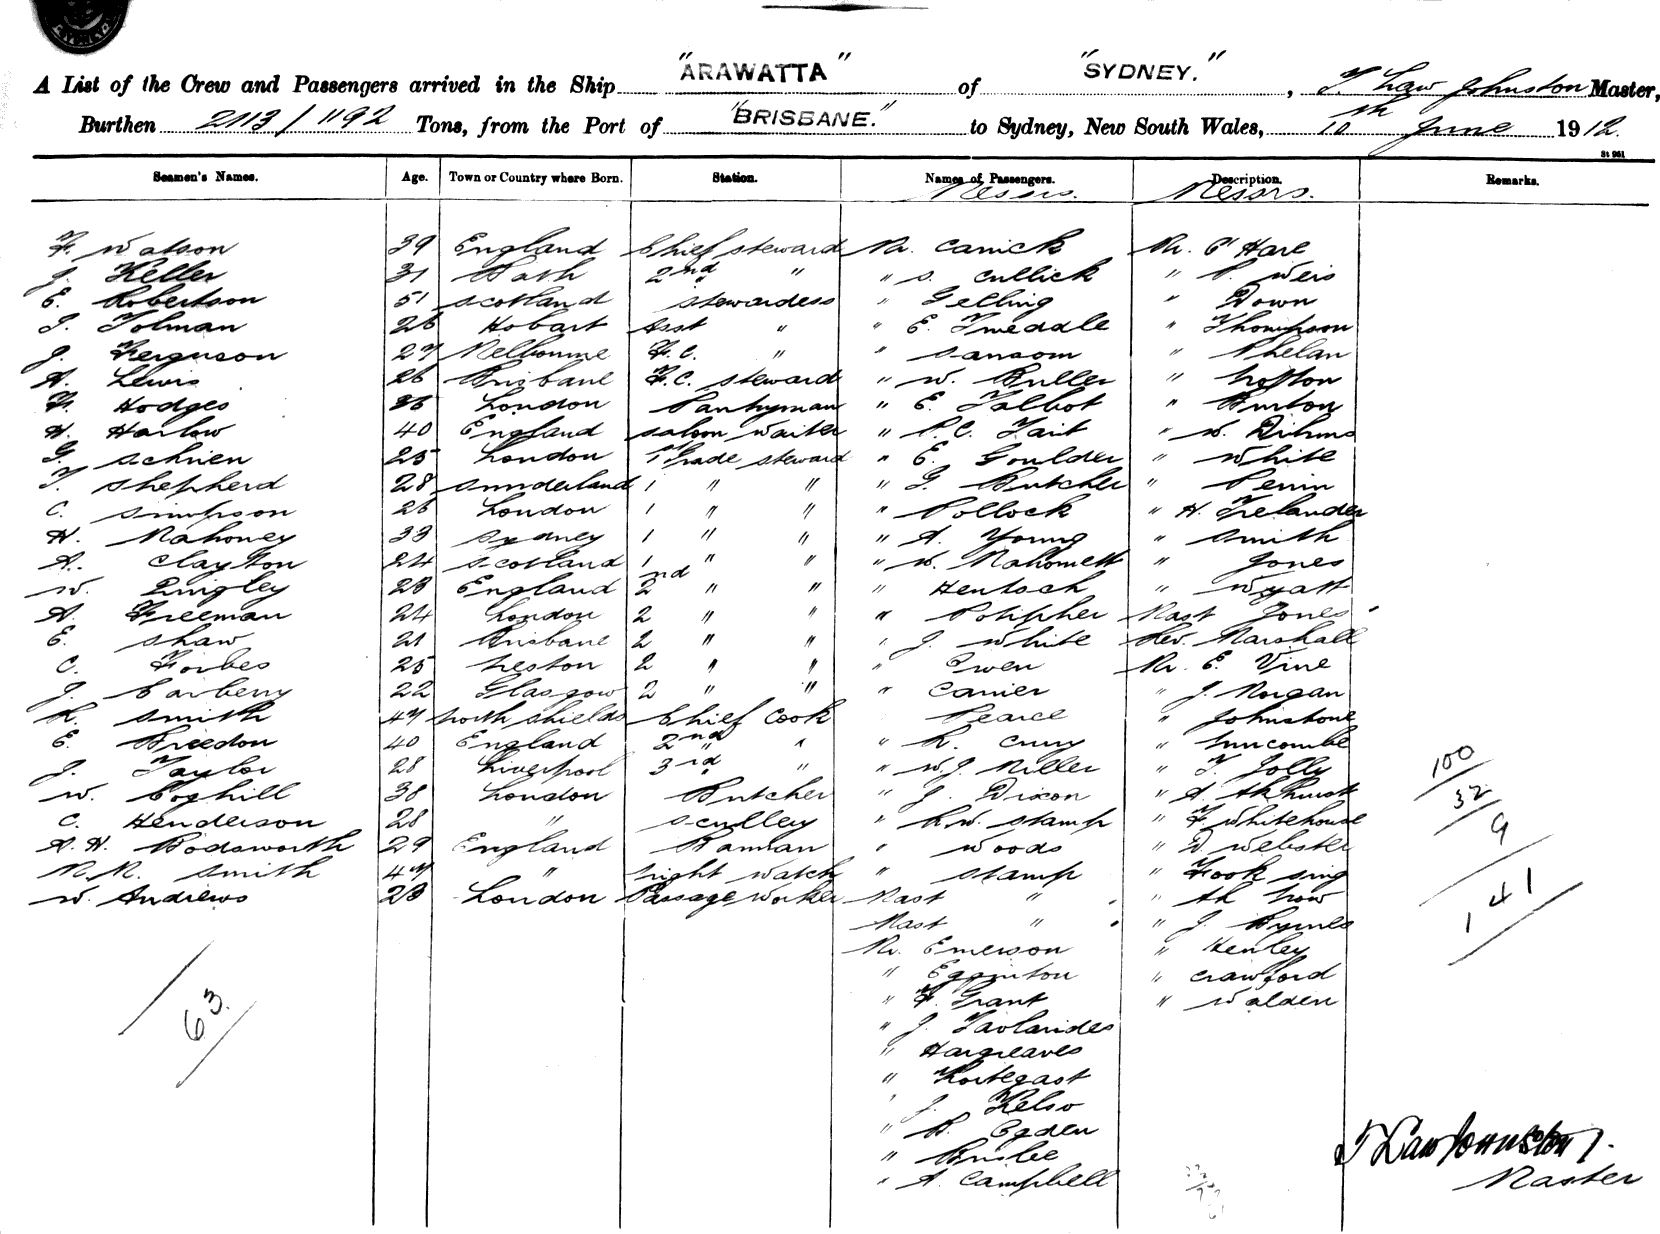 A List of the Crew and Passengers arrived in the Ship "ARAWATTA" of "SYDNEY.", T. Law Johnston Master,
Burthen 2113/1192 Tons, from the Port of "BRISBANE." to Sydney, New South Wales, 10th June 1912.
St 961
Seamen's Names. Age. Town or Country where Born. Station. Names of Passengers. Description. Remarks.
Messrs. Messrs.
F. Watson 39 England Chief steward Mr. Carrick Mr. O'Hare
J. Keller 31 Bath 2nd " " S. Cullick " P. Weis
E. Robertson 51 Scotland Stewardess " Gelling " Down
J. Tolman 26 Hobart Asst " " E. Tmeddle " Thompson
J. Ferguson 27 Melbourne F.C. " " Sansom " Phelan
A. Lewis 26 Brisbane F.C. steward " W. Buller " Lofton
F. Hodges 26 London Pantryman " E. Talbot " Burton
H. Harlow 40 England Saloon Waiter " P.C. Tait " W. Dihms
G. Schrien 25 London 1 Grade steward " E. Goulder " White
T. Shepherd 28 Sunderland 1 " " " G. Butcher " Perrin
C. Simpson 26 London 1 " " " Pollock " H. Irelander
H. Mahoney 33 Sydney 1 " " " A. Young " Smith
A. Clayton 24 Scotland 1 " " " W. Mahomett " Jones
W. Dingley 23 England 2nd " " " Hentsch " Wyatt
A. Freeman 24 London 2 " " " Potipher Mast Jones
E. Shaw 21 Brisbane 2 " " " J. White Rev. Marshall
C. Forbes 25 Neston 2 " " " Owen Mr. E. Vine
J. Carberry 22 Glasgow 2 " " " Carrier " J. Morgan
R. Smith 47 North Shields Chief Cook Pearce " Johnstone
E. Breedon 40 England 2nd " " " R. Curry " Luscombe
J. Taylor 28 Liverpool 3rd " " " W.J. Miller " T. Jolly
W. Coghill 38 London Butcher " J. Dixon " A. Akhurst
C. Henderson 28 " Sculley " R.W. Stamp " F. Whitehouse
A.H. Bodsworth 29 England Barman " Woods " D. Webster
M.M. Smith 47 " Night Watch " Stamp " Fook Sing
W. Andrews 23 London Passage Worker Mast " " Ah How
Mast " " J. Byrnes
Mr. Emerson " Henley
" Egginton " Crawford
" F. Grant " Walden
" J. Tavlarides
" Hargreaves
" Kortegast
" J. Kelso
" R. Ogden
" Brislee
" A. Campbell
63
100
32
9
141
T Law Johnston
Master